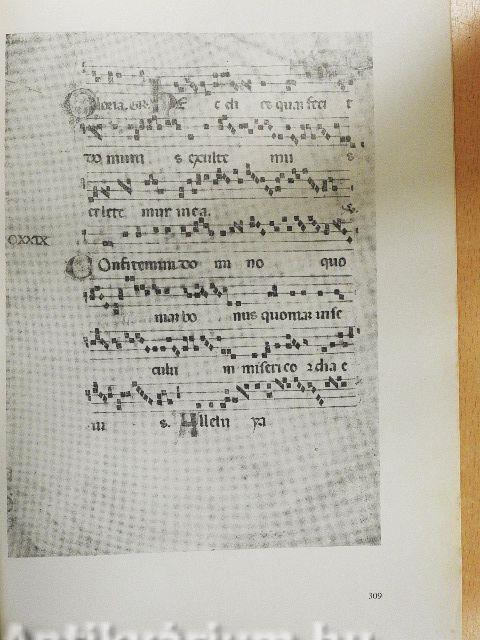 Gloria. GR. HEc di es quam feci t
do minus exulte mu s
et lete mur in ea.
CXXIX
Confitemini do mi no quo
niam bo nus quoniam in se
culu m miseri co rdia e
iu s. Allelu ya
309
Antikvárium.hu